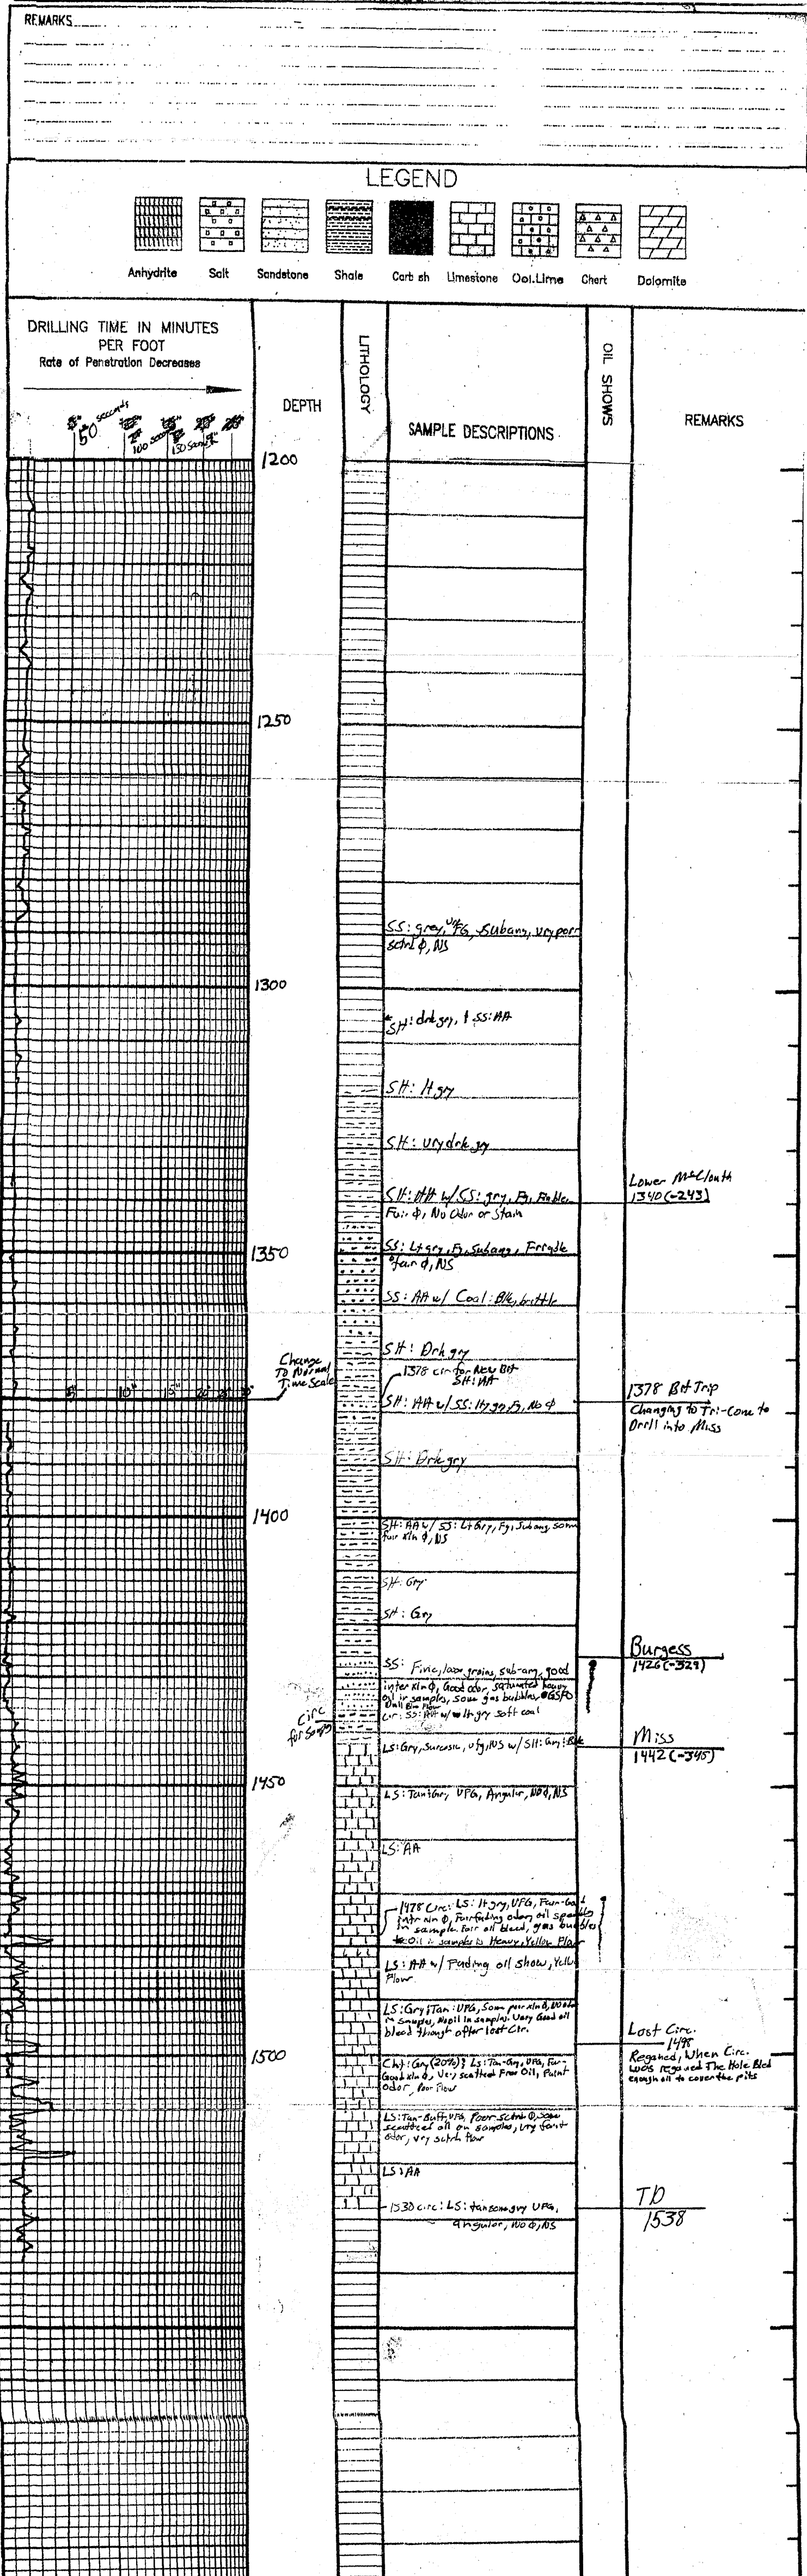 REMARKS
LEGEND
Anhydrite Salt Sandstone Shale Carb sh Limestone Ool.Lime Chert Dolomite
DRILLING TIME IN MINUTES
PER FOOT
Rate of Penetration Decreases
DEPTH
LITHOLOGY
SAMPLE DESCRIPTIONS
OIL SHOWS
REMARKS
50 seconds
100 seconds
150 seconds
1200
1250
SS: grey, VFG, Subang, vry poor
sctrd φ, NS
1300
SH: drk gry, & SS: AA
SH: lt gry
SH: vry drk gry
Lower McClouth
1340 (-243)
SH: AA w/ SS: gry, Fg, Friable
Fair φ, No Odor or Stain
1350
SS: Lt gry, Fg, Subang, Friable
fair φ, NS
SS: AA w/ Coal: Blk, brittle
SH: Drk gry
Change
To Normal
Time Scale
5" 10" 15" 20" 25" 30"
1378 circ for New Bit
SH: AA
SH: AA w/ SS: lt gry, Fg, No φ
1378 Bit Trip
Changing to Tri-Cone to
Drill into Miss
SH: Drk gry
1400
SH: AA w/ SS: Lt Gry, Fg, Subang, some
fair xln φ, NS
SH: Gry
SH: Gry
Burgess
1426 (-329)
SS: Fine, loose grains, sub-ang, good
inter xln φ, Good odor, saturated heavy
oil in samples, some gas bubbles, GSFO
Circ: SS: AA w/ lt gry soft coal
Circ
for Samp
Miss
1442 (-345)
LS: Gry, Sucrosic, vfg, NS w/ SH: Gry & Blk
1450
LS: Tan & Gry, VFG, Angular, NO φ, NS
LS: AA
1478 Circ: LS: lt gry, VFG, Fair-Good
intr xln φ, Fair fading odor, oil speckles
in sample. Fair oil bleed, gas bubbles
Oil in samples is Heavy, Yellow Flour
LS: AA w/ Fading oil show, Yellow
Flour.
LS: Gry & Tan: VFG, Some poor xln φ, No odor
in samples, No oil in samples. Very Good oil
bleed though after lost Circ.
Lost Circ.
1498
Regained, When Circ.
was regained The Hole Bled
enough oil to cover the pits
1500
Cht: Gry (20%) & LS: Tan-Gry, VFG, Fair-
Good xln φ, Very scattered Free Oil, Faint
odor, Poor Flour
LS: Tan-Buff, VFG, Poor sctrd φ, Some
scattered oil on samples, vry faint
odor, vry sctrd flour
LS: AA
1530 circ: LS: tan some gry VFG,
angular, NO φ, NS
TD
1538